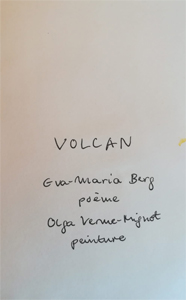 VOLCAN
Eva-Maria Berg
poème
Olga Verme-Mignot
peinture